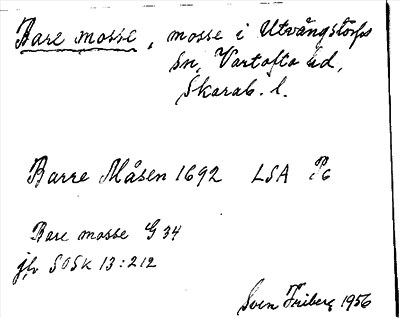 Bare mosse, mosse i Utvängstorps
sn, Vartofta hd,
Skarab. l.
Barre Måsen 1692 LSA P6
Bare mosse G 34
jfr SOSk 13:212
Sven Friberg 1956